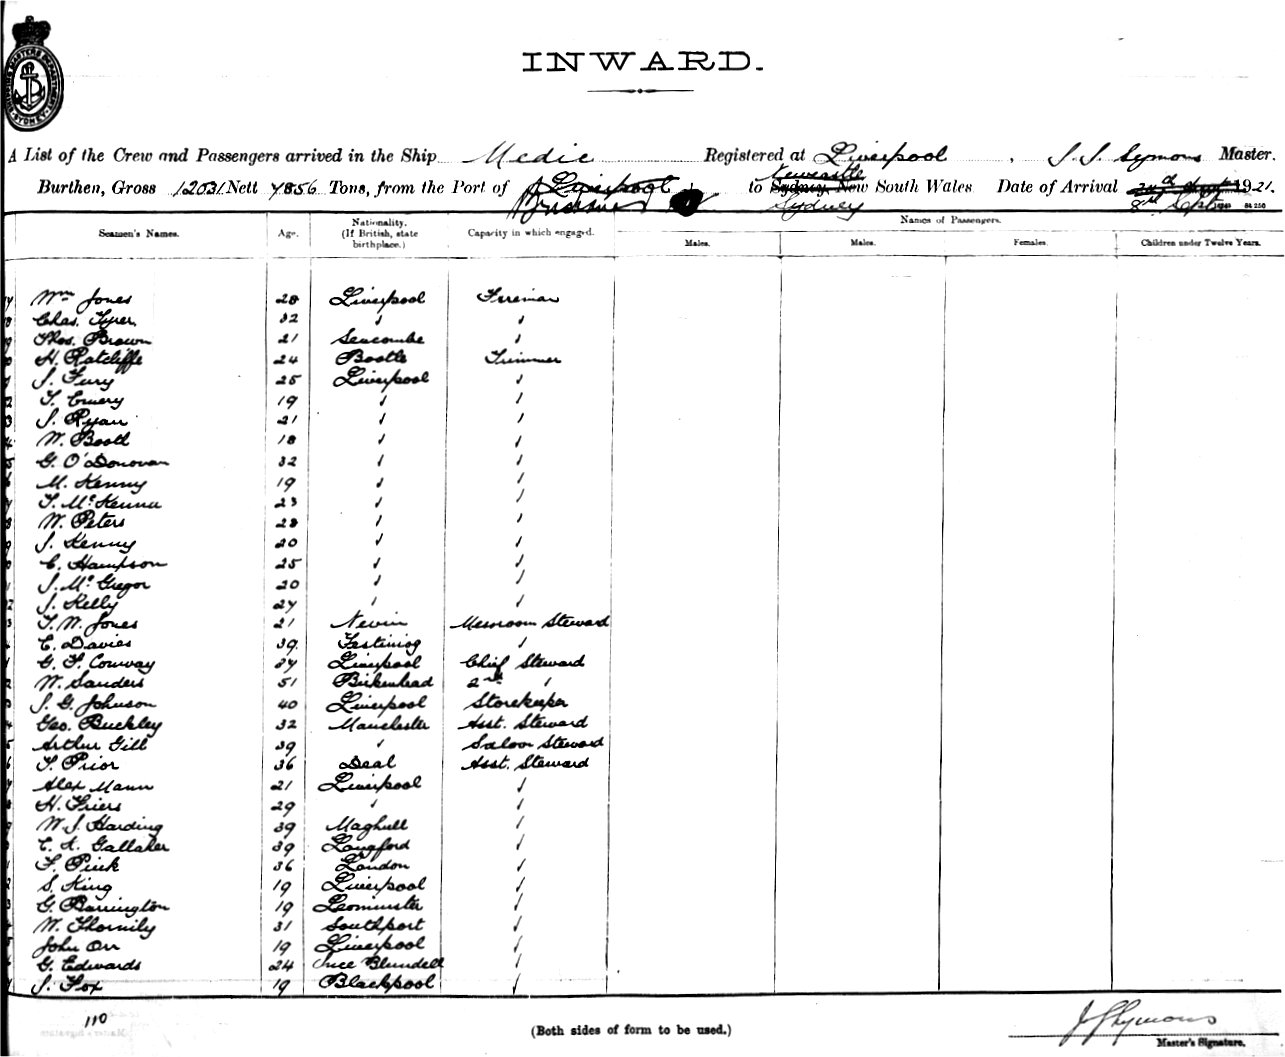 SHIPPING MASTERS DEPARTMENT SYDNEY
INWARD.
A List of the Crew and Passengers arrived in the Ship Medic Registered at Liverpool, J. S. Symons Master.
Newcastle
Burthen, Gross 12031 Nett 7856 Tons, from the Port of Liverpool to Sydney, New South Wales Date of Arrival 1921.
Brisbane Sydney 8th Sept
Seamen's Names. Age. Nationality. (If British, state birthplace.) Capacity in which engaged. Names of Passengers.
Males. Males. Females. Children under Twelve Years.
Wm Jones 28 Liverpool Fireman
Chas. Tyrer 32 " "
Thos. Brown 21 Seacombe "
H. Ratcliffe 24 Bootle Trimmer
J. Fury 25 Liverpool "
T. Emery 19 " "
J. Ryan 21 " "
W. Booth 18 " "
G. O'Donovan 32 " "
M. Kenny 19 " "
T. McKenna 23 " "
W. Peters 28 " "
J. Kenny 20 " "
C. Hampson 25 " "
J. McGregor 20 " "
J. Kelly 27 " "
T. W. Jones 21 Nevin Messroom Steward
E. Davies 39 Festiniog "
G. F. Conway 37 Liverpool Chief Steward
W. Sanders 51 Birkenhead 2nd "
J. G. Johnson 40 Liverpool Storekeeper
Geo. Buckley 32 Manchester Asst. Steward
Arthur Gill 39 " Saloon Steward
T. Prior 36 Deal Asst. Steward
Alex Mann 21 Liverpool "
H. Friers 29 " "
W. J. Harding 39 Maghull "
E. A. Gallaher 39 Longford "
F. Pink 36 London "
S. King 19 Liverpool "
G. Barrington 19 Leominster "
W. Thornily 31 Southport "
John Orr 19 Liverpool "
G. Edwards 24 Ince Blundell "
J. Fox 19 Blackpool "
110
(Both sides of form to be used.)
J S Symons
Master's Signature.